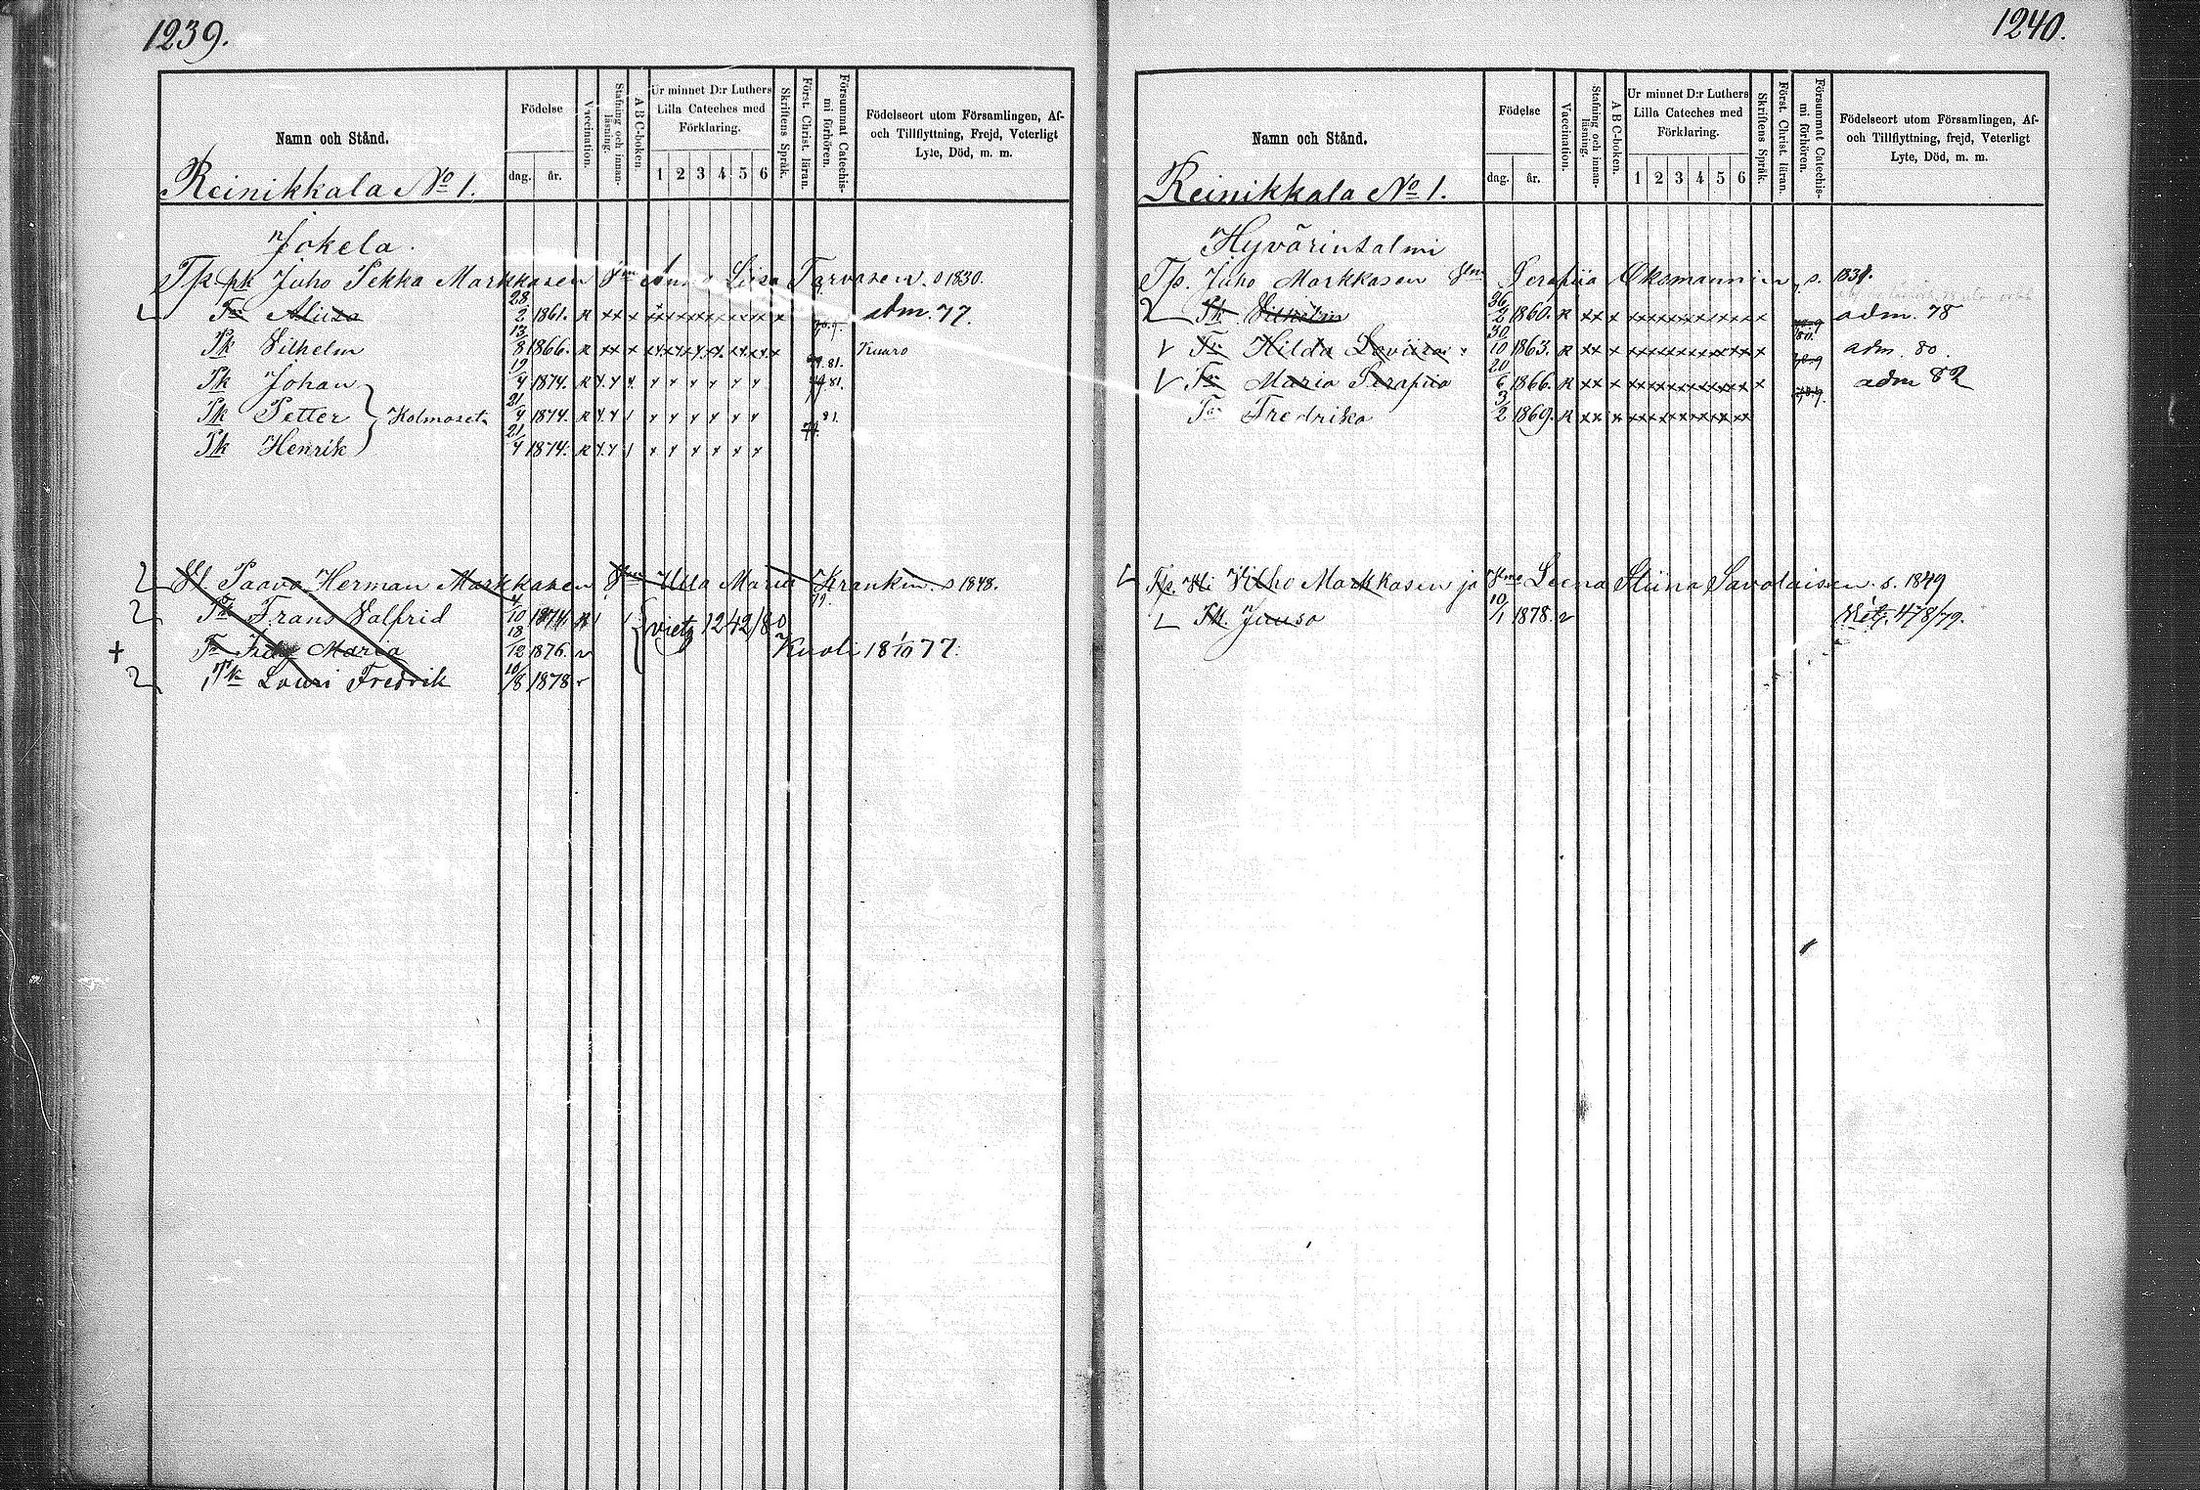 1239.
Namn och Stånd.
Födelse
dag. år.
Vaccination.
Stafning och innanläsning.
A B C-boken.
Ur minnet D:r Luthers Lilla Cateches med Förklaring.
1 2 3 4 5 6
Skriftens Språk.
Först. Christ. läran.
Försummat Catechismi förhören.
Födelseort utom Församlingen, Af- och Tillflyttning, Frejd, Veterligt Lyte, Död, m. m.
Reinikkala No 1.
Jokela.
Juho Pekka Markkasen Liisa Tarvasen s 1830.
28/2 1861. R adm. 77.
Pk Vilhelm 13/8 1866. R
Pk Johan 19/4 1874. R 81.
Pk Petter Kolmoset 21/4 1874. R 81.
Pk Henrik 21/4 1874. R
Paavo Herman Markkasen Ulla Maria Krankin s 1848.
Pk Frans Valfrid vietz 1242/80
Maria 18/12 1876. Kuoli 18 1/10 77.
Pk Lauri Fredrik 10/8 1878
1240.
Namn och Stånd.
Födelse
dag. år.
Vaccination.
Stafning och innanläsning.
A B C-boken.
Ur minnet D:r Luthers Lilla Cateches med Förklaring.
1 2 3 4 5 6
Skriftens Språk.
Först. Christ. läran.
Försummat Catechismi förhören.
Födelseort utom Församlingen, Af- och Tillflyttning, frejd, Veterligt Lyte, Död, m. m.
Reinikkala No 1.
Hyvärinsalmi
Juho Markkasen Serafiia Oksmannin s.
Pk Vilhelm 1860. R adm. 78
Hilda Loviisa 30/10 1863. R adm. 80.
Maria Serafiia 20/6 1866. R adm 82
Fredrika 3/2 1869. R
Vilho Markkasen ja Leena Stiina Savolaisen. s. 1849
Pk. Juuso 10/1 1878. 478/79.